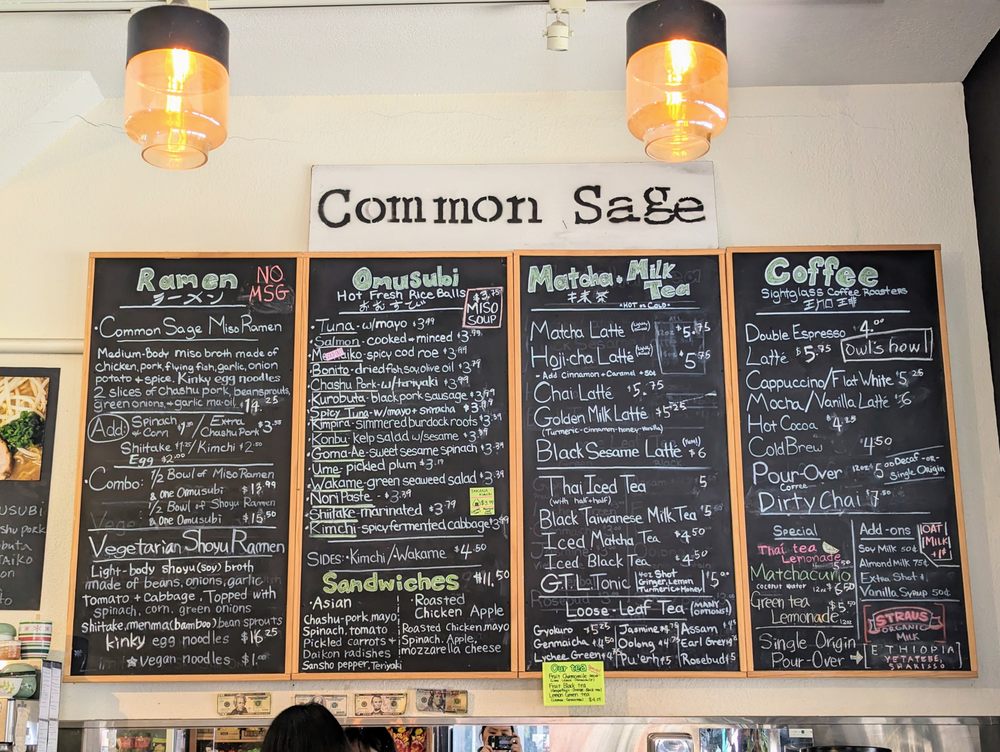 Common Sage
Ramen
ラーメン
NO
MSG
Common Sage Miso Ramen
Medium-Body miso broth made of
chicken, pork, flying fish, garlic, onion
potato + spice. Kinky egg noodles
2 slices of Chashu pork, beansprouts,
green onions, + garlic mu oil. $14.25
Add: Spinach + Corn / Extra Chashu Pork
Shiitake / Kimchi $2.50
Egg $2.00
Combo: 1/2 Bowl of Miso Ramen
& one Omusubi
1/2 Bowl of Shoyu Ramen
& one Omusubi $15.50
Vegetarian Shoyu Ramen
Light-body shoyu (soy) broth
made of beans, onions, garlic
tomato + cabbage. Topped with
spinach, corn, green onions
shiitake, menma (bamboo) bean sprouts
kinky egg noodles $16.25
vegan noodles $1.00
Omusubi
Hot Fresh Rice Balls
おむすび
$3.75
MISO
SOUP
Tuna - w/mayo $3.49
Salmon - cooked + minced $3.99
spicy cod roe $3.99
Bonito - dried fish, soy, olive oil
Chashu Pork - w/teriyaki $3.99
Kurobuta - black pork sausage $3.99
Spicy Tuna - w/mayo + sriracha
Kimpira - simmered burdock roots
Konbu - kelp salad w/sesame
Goma-Ae - sweet sesame spinach
Ume - pickled plum
Wakame - green seaweed salad
Nori Paste
Shiitake - marinated $3.79
Kimchi - spicy fermented cabbage
SIDES: Kimchi/Wakame $4.50
Sandwiches $11.50
Asian
Chashu-pork, mayo
Spinach, tomato
Pickled carrots +
Daikon radishes
Sansho pepper, Teriyaki
Roasted
Chicken Apple
Roasted Chicken, mayo
Spinach, Apple,
mozzarella cheese
Matcha + Milk
Tea
HOT or COLD
Matcha Latte $5.75
Hoji-cha Latte $5.75
Add Cinnamon + Caramel + 50¢
Chai Latte $5.75
Golden Milk Latte $5.25
(Turmeric-cinnamon-honey-vanilla)
Black Sesame Latte $6
Thai Iced Tea 5
(with half + half)
Black Taiwanese Milk Tea
Iced Matcha Tea $4.50
Iced Black Tea $4.50
G.T.L. Tonic
4oz Shot
Ginger, Lemon
Turmeric + Honey
$5.00
Loose-Leaf Tea (MANY OPTIONS!)
Gyokuro $5.25 Jasmine Assam
Genmaicha Oolong Earl Grey
Lychee Green Pu'erh Rosebud $5
Our tea
Fruit Chamomile
Fruit Black tea
Lemon Green tea
Coffee
Sightglass Coffee Roasters
Double Espresso 4.00
Latte $5.75
Owl's howl
Cappuccino/Flat White $5.25
Mocha/Vanilla Latte $6
Hot Cocoa
Cold Brew 4.50
Pour-Over
Coffee
Decaf -OR-
Single Origin
Dirty Chai $7.50
Special
Thai tea
Lemonade
Matchacurio
coconut water
Green tea
Lemonade
Single Origin
Pour-Over
Add-ons
Soy Milk 50¢
Almond Milk 75¢
Extra Shot $1
Vanilla Syrup 50¢
OAT
Milk
+$1
STRAUS
ORGANIC
MILK
ETHIOPIA